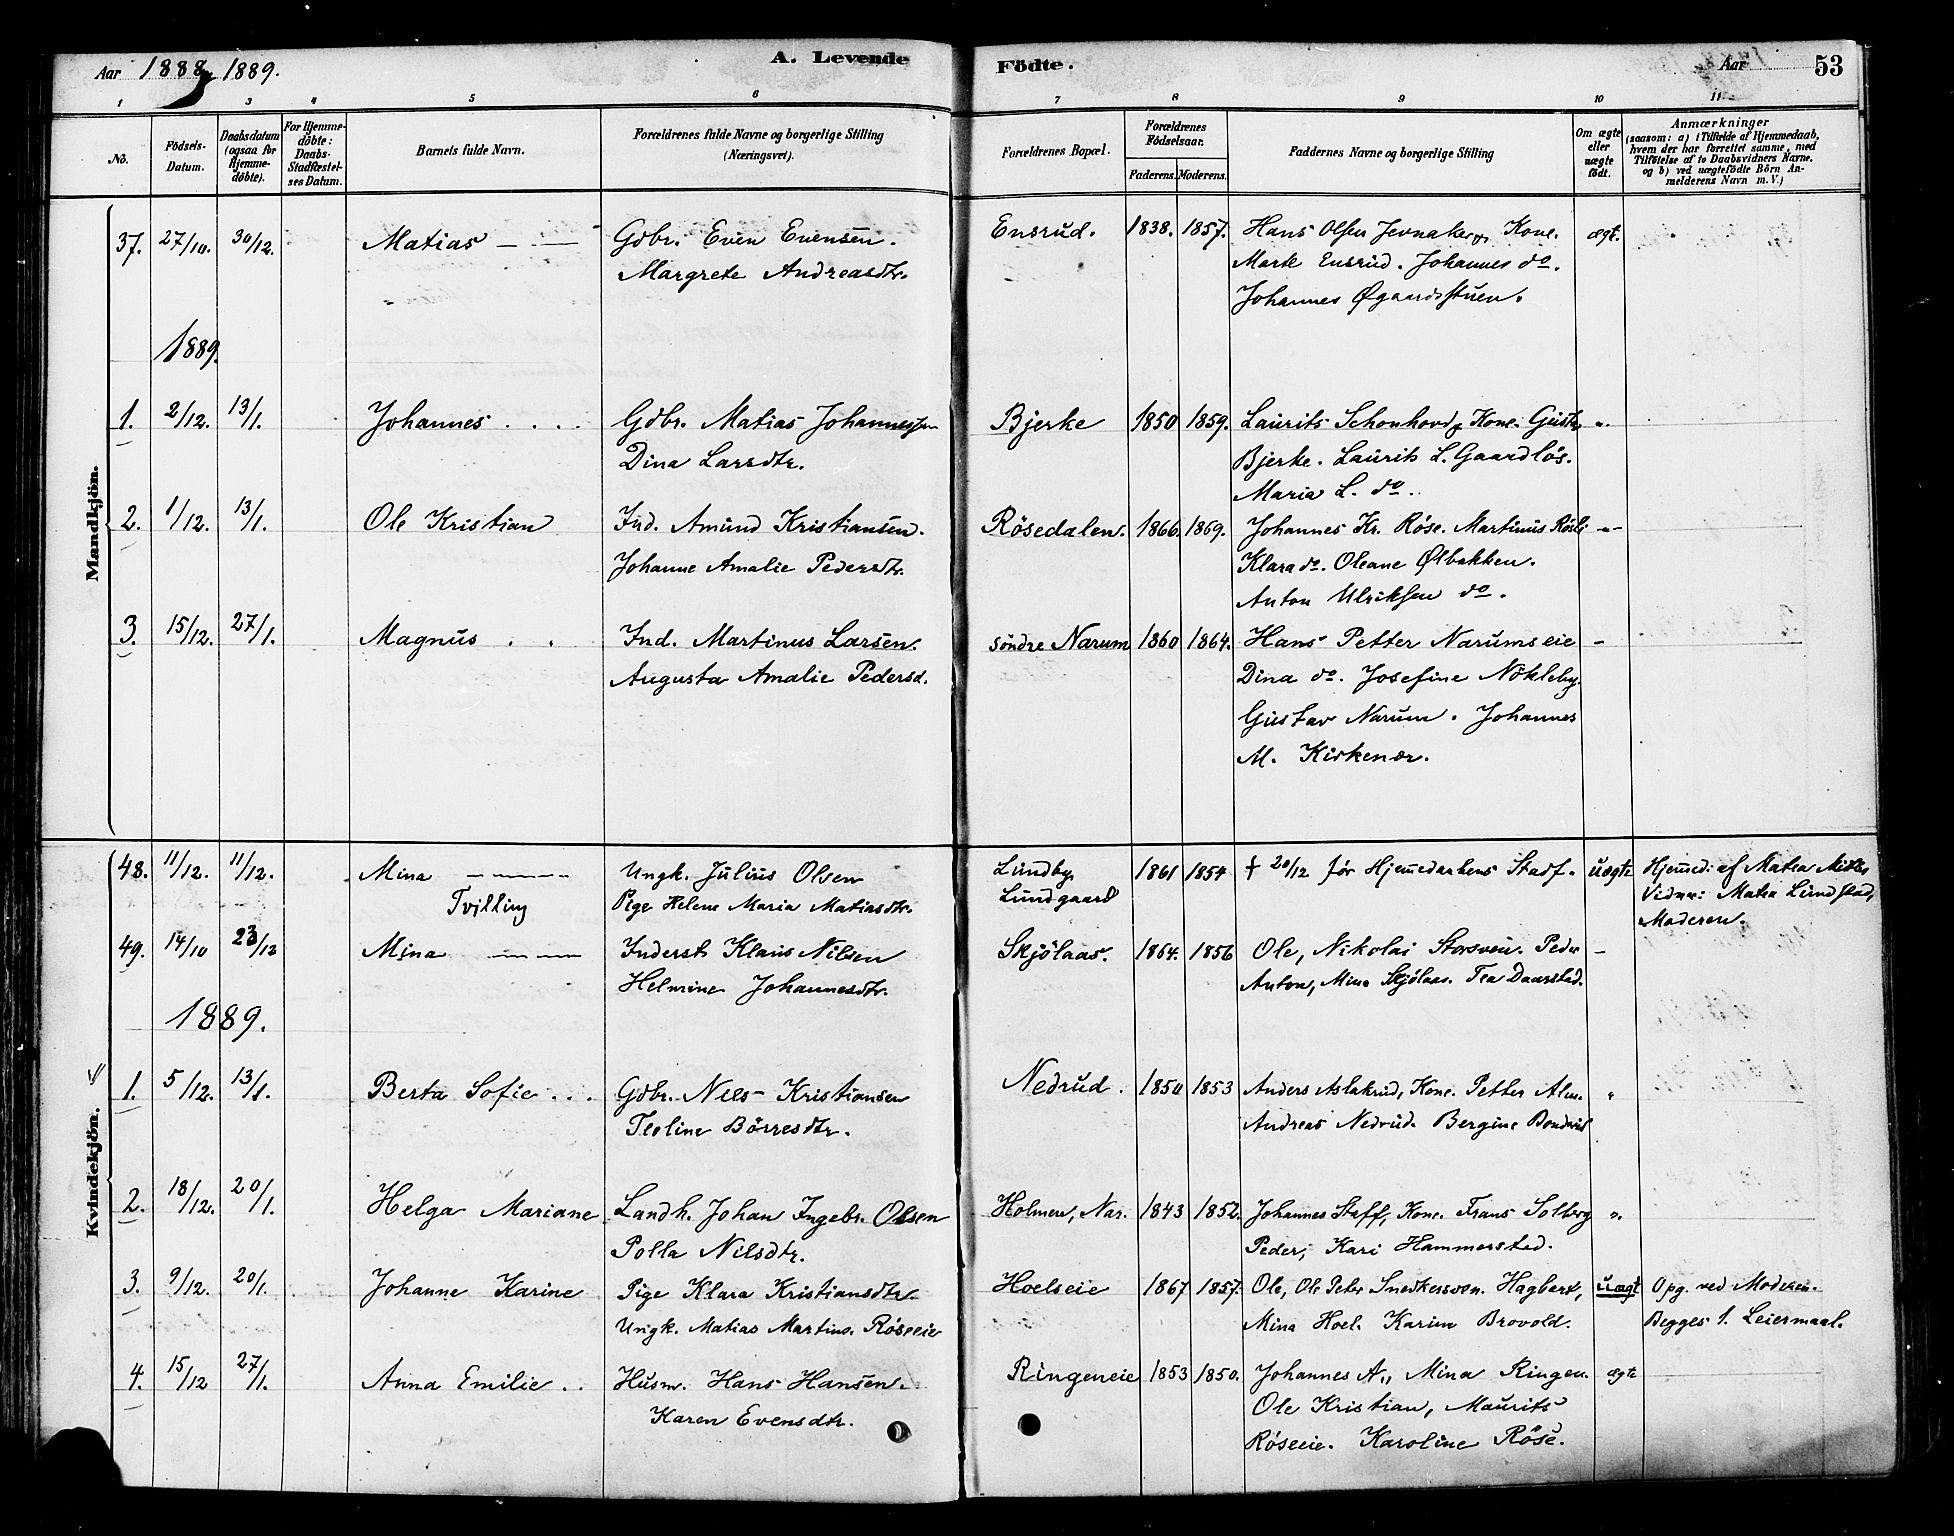 Aar 1888, 1889. A. Levende Födte. Aar 53
1 3 4 5 6 7 8 9 10 11
No. Födsels-Datum. Daabsdatum (ogsaa for Hjemmedöbte). For Hjemmedöbte: Daabs-Stadfæstelses Datum. Barnets fulde Navn. Forældrenes fulde Navne og borgerlige Stilling (Næringsvei). Forældrenes Bopæl. Forældrenes Födselsaar. Faderens. Moderens. Faddernes Navne og borgerlige Stilling Om ægte eller uægte födt. Anmærkninger (saasom: a) i Tilfælde af Hjemmedaab, hvem der har forrettet samme, med Tilföielse af to Daabsvidners Navne. og b) ved uægtefödte Börn Anmelderens Navn m. V.)
Mandkjön.
37. 27/10. 30/12. Matias Gdbr. Even Evensen. Ensrud. 1838. 1857. Hans Olsen Jevnaker, Kone. ægt.
Margrete Andreasdtr. Marte Ensrud. Johannes do.
Johannes Øgaardsstuen.
1889.
1. 2/12. 13/1. Johannes .... Gdbr. Matias Johannessen Bjerke 1850 1859. Laurits Schonhovd, Kone. Gusta „
Dina Larsdtr. Bjerke. Laurits L. Gaardløs.
Maria L. do.
2. 1/12. 13/1. Ole Kristian Ind. Amund Kristiansen. Rösedalen. 1866. 1869. Johannes Kr. Röse. Martinus Rösli -„-
Johanne Amalie Pedersdtr. Klara do. Oleane Ølbakken.
Anton Ulriksen do.
3. 15/12. 27/1. Magnus . . Ind. Martinus Larsen. söndre Narum 1860 1864. Hans Petter Narumseie -
Augusta Amalie Pedersd. Dina do. Josefine Nökleby.
Gustav Narum. Johannes
M. Kirkenær.
Kvindekjön.
48. 11/12. 11/12. Mina Ungk. Julius Olsen Lundby, 1861 1854 † 20/12 før Hjemmedaabens Stadf. uægte Hjemmed: af Matea
Tvilling Pige Helene Maria Matiasdtr. Lundgaard Vidner: Matea Lundstad,
Moderen.
49. 14/10 23/12 Mina Inderst Klaus Nilsen Skjölaas. 1864. 1856 Ole, Nikolai Storsveen. Peder -
Helmine Johannesdtr. Anton, Mina Skjölaas. Tea Daarstad.
1889.
1. 5/12. 13/1. Berta Sofie ... Gdbr. Nils Kristiansen Nedrud. 1850 1853 Anders Aslakrud, Kone. Petter Alm. „
Teoline Börresdtr. Andreas Nedrud. Bergine Bondvid
2. 18/12. 20/1. Helga Mariane Landh. Johan Ingebr. Olsen Holmen, Nar. 1843 1852. Johannes Staff, Kone. Frans Solberg „.
Polla Nilsdtr. Peder, Kari Hammerstad.
3. 9/12. 20/1. Johanne Karine Pige Klara Kristiansdtr. Hoelseie 1867 1857. Ole, Ole Peter Smedkersveen. Hagbart, uægt Opg. ved Moderen.
Ungk. Matias Martins. Röseeie Mina Hoel. Karin Brovold. Begges 1. Leiermaal.
4. 15/12 27/1. Anna Emilie .. Husm. Hans Hansen. Ringeneie 1853 1850. Johannes A., Mina Ringen. ægte
Karen Evensdtr. Ole Kristian, Maurits
Röseeie. Karoline Röse.